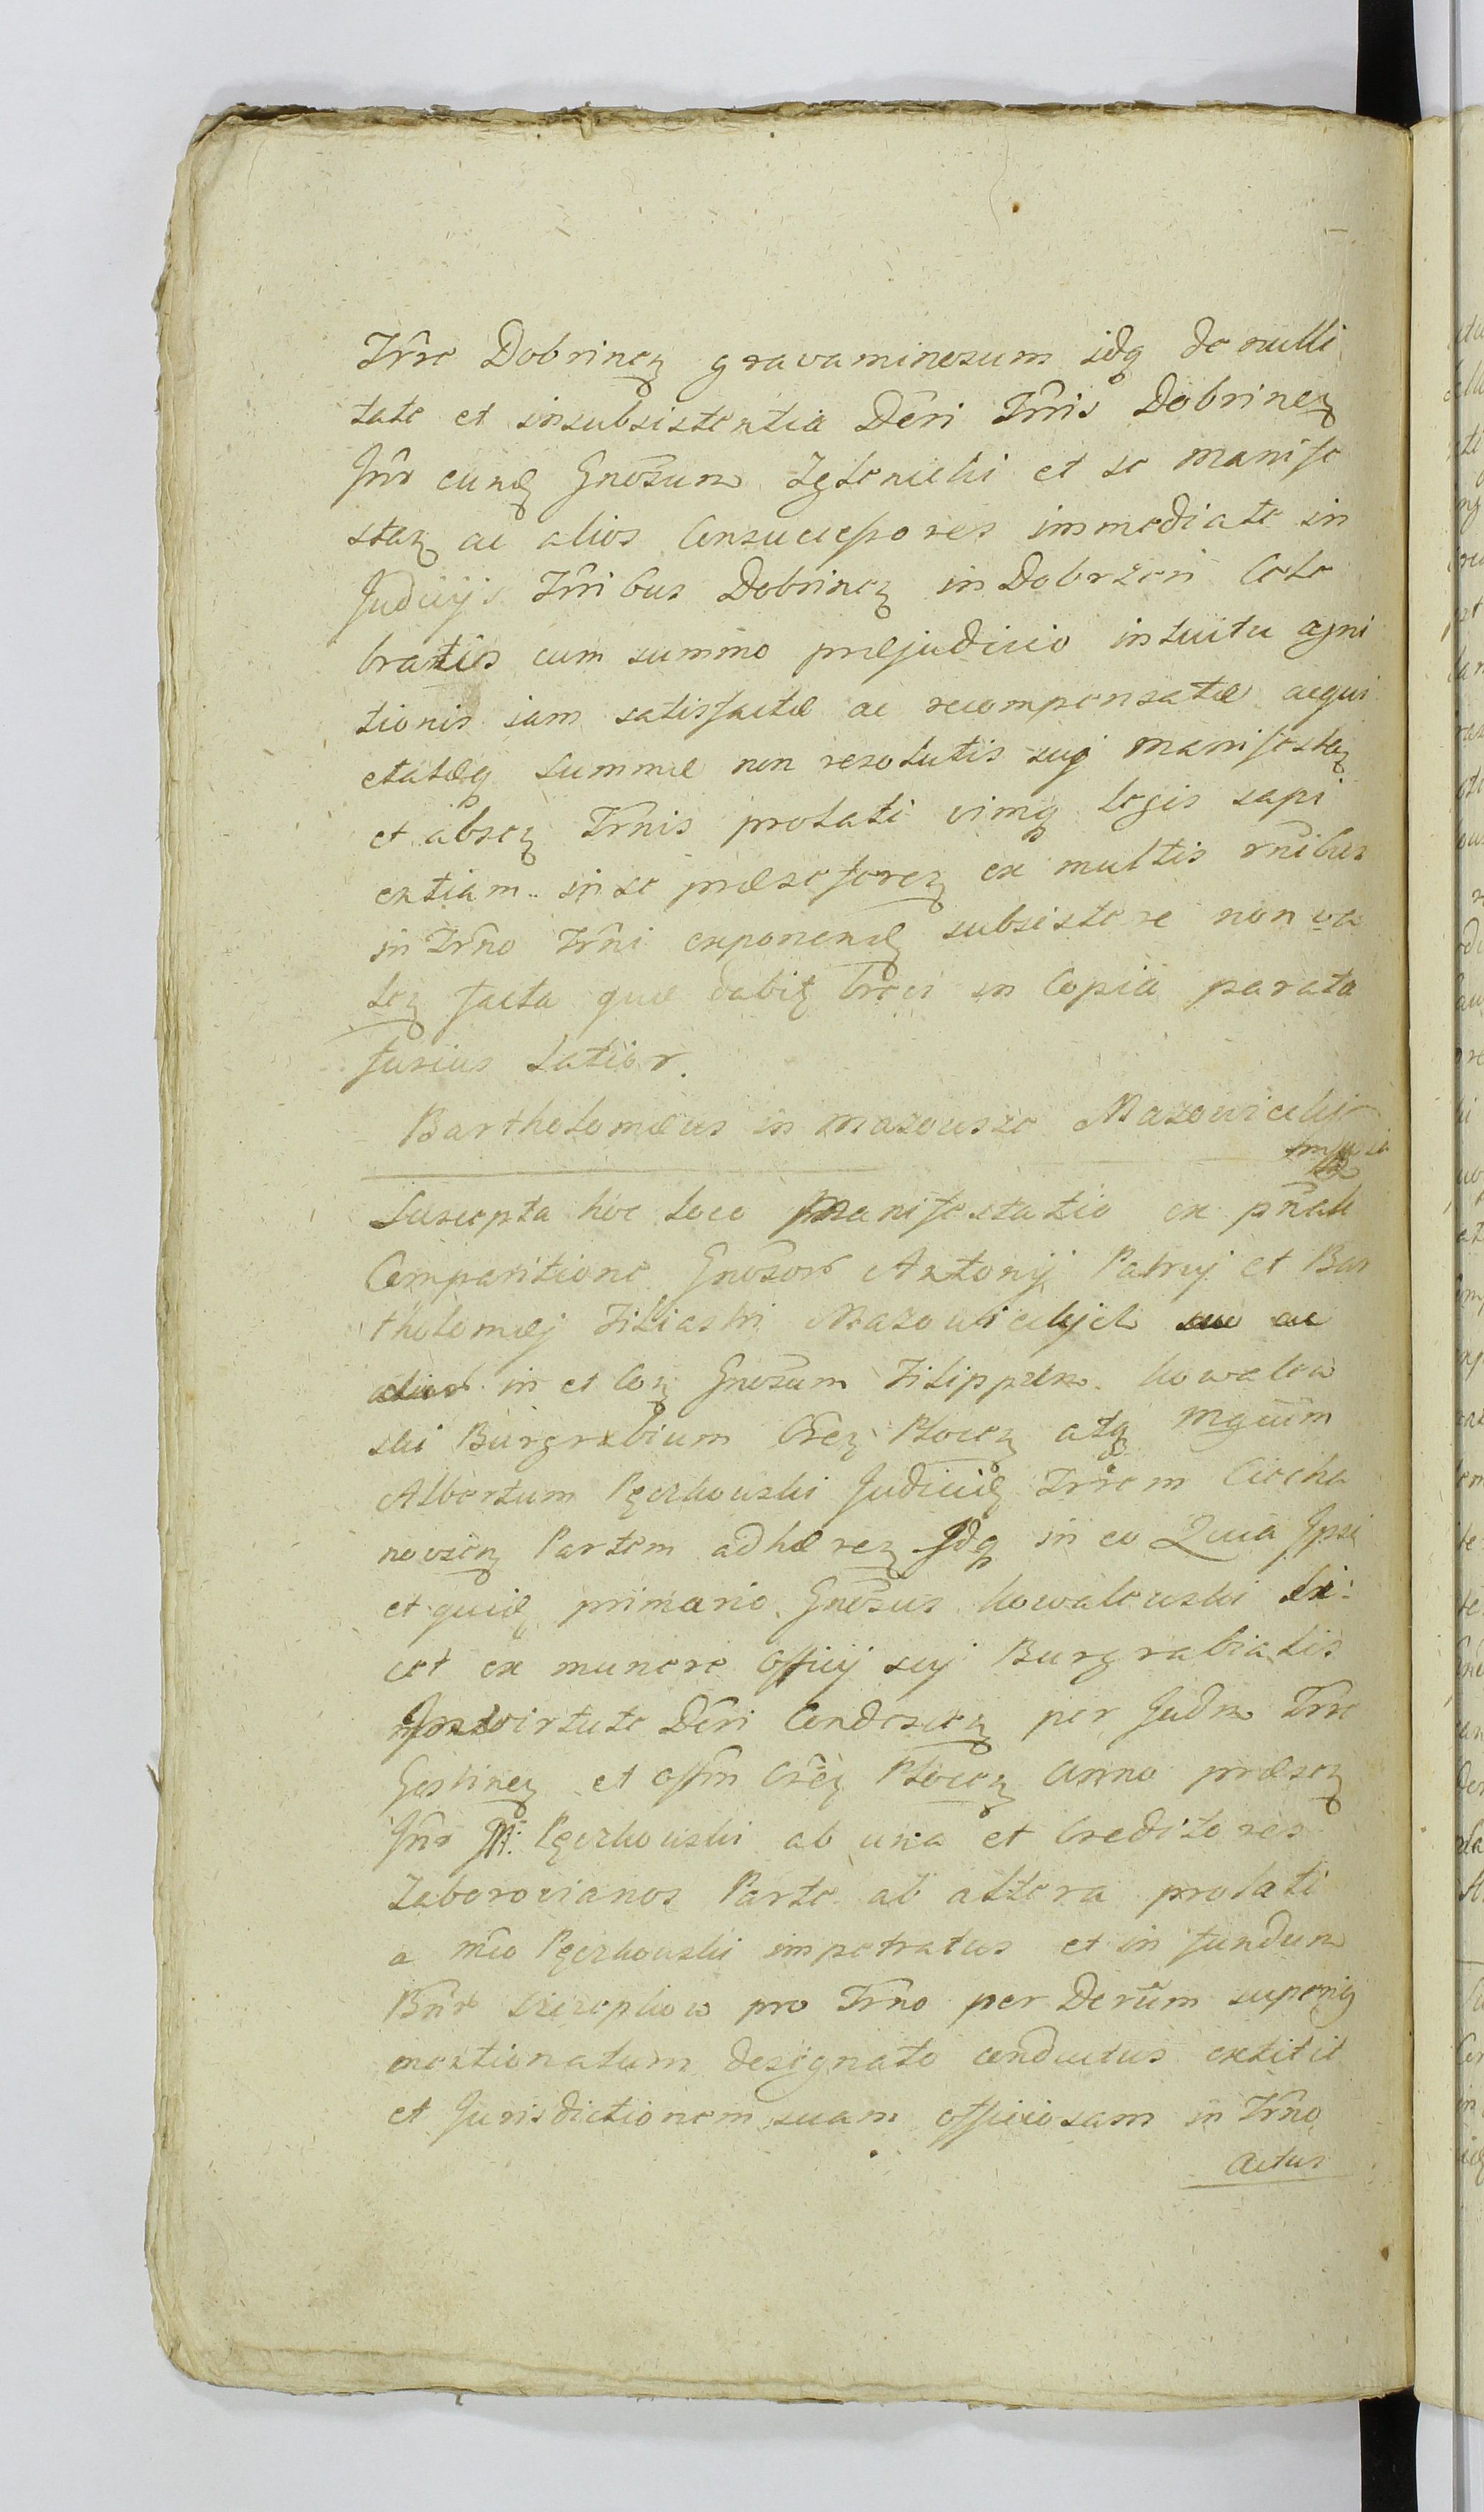 Trre Dobrinen gravaminosum idq de nulli
tate et insubsistentia Dcri Trris Dobrinen
Intr eundē Gnosum Zglenicki et se manife
sten ac alios Consuccessores immediate in
Judicijs Trribus Dobrinen in Dobrzen Cele
bratis cum summo præjudicio intuitu agni
tionis iam satisfactæ ac recompensatæ acqui
etatæq Summæ non resolutis suij manifesten
et absen Trnis prolati vimq legis sapi
entiam in se præseferen ex multis rnibus
in Trno Trni exponendē subsistere non va
len facta quæ dabit brevi in Copia parata
fusius latior.
Bartholomæus in Mazowsze Mazowiecki
Suscepta hoc loco Manifestatio ex pnali
Comparitione Gnosor Antonij Patruj et Bar
tholomæj Filiastri Mazowieckich
in et Con Gnosum Filippum Kowalew
ski Burgrabium Cren Plocen atq Mgcum
Albertum Pęczkowski Judicē Trrem Ciecha
novien Partem adhæren Idq in eo Quia Ipse
et quidē primario Gnosus Kowalewski li
cet ex munere Officij suj Burgrabialis
virtute Dcri Condescen per Judm Trre
Gostinen et Offm Cren Plocen Anno præsen
Intr M: Pęczkowski ab una et Creditores
Zaborovianos Parte ab altera prolati
a mco Pęczkowski impetratus et in fundum
Bnor Szczepkow pro Trno per Decrum superiq
mentionatum designato conductus extitit
et Jurisdictionem suam officiosam in Trno
Actus